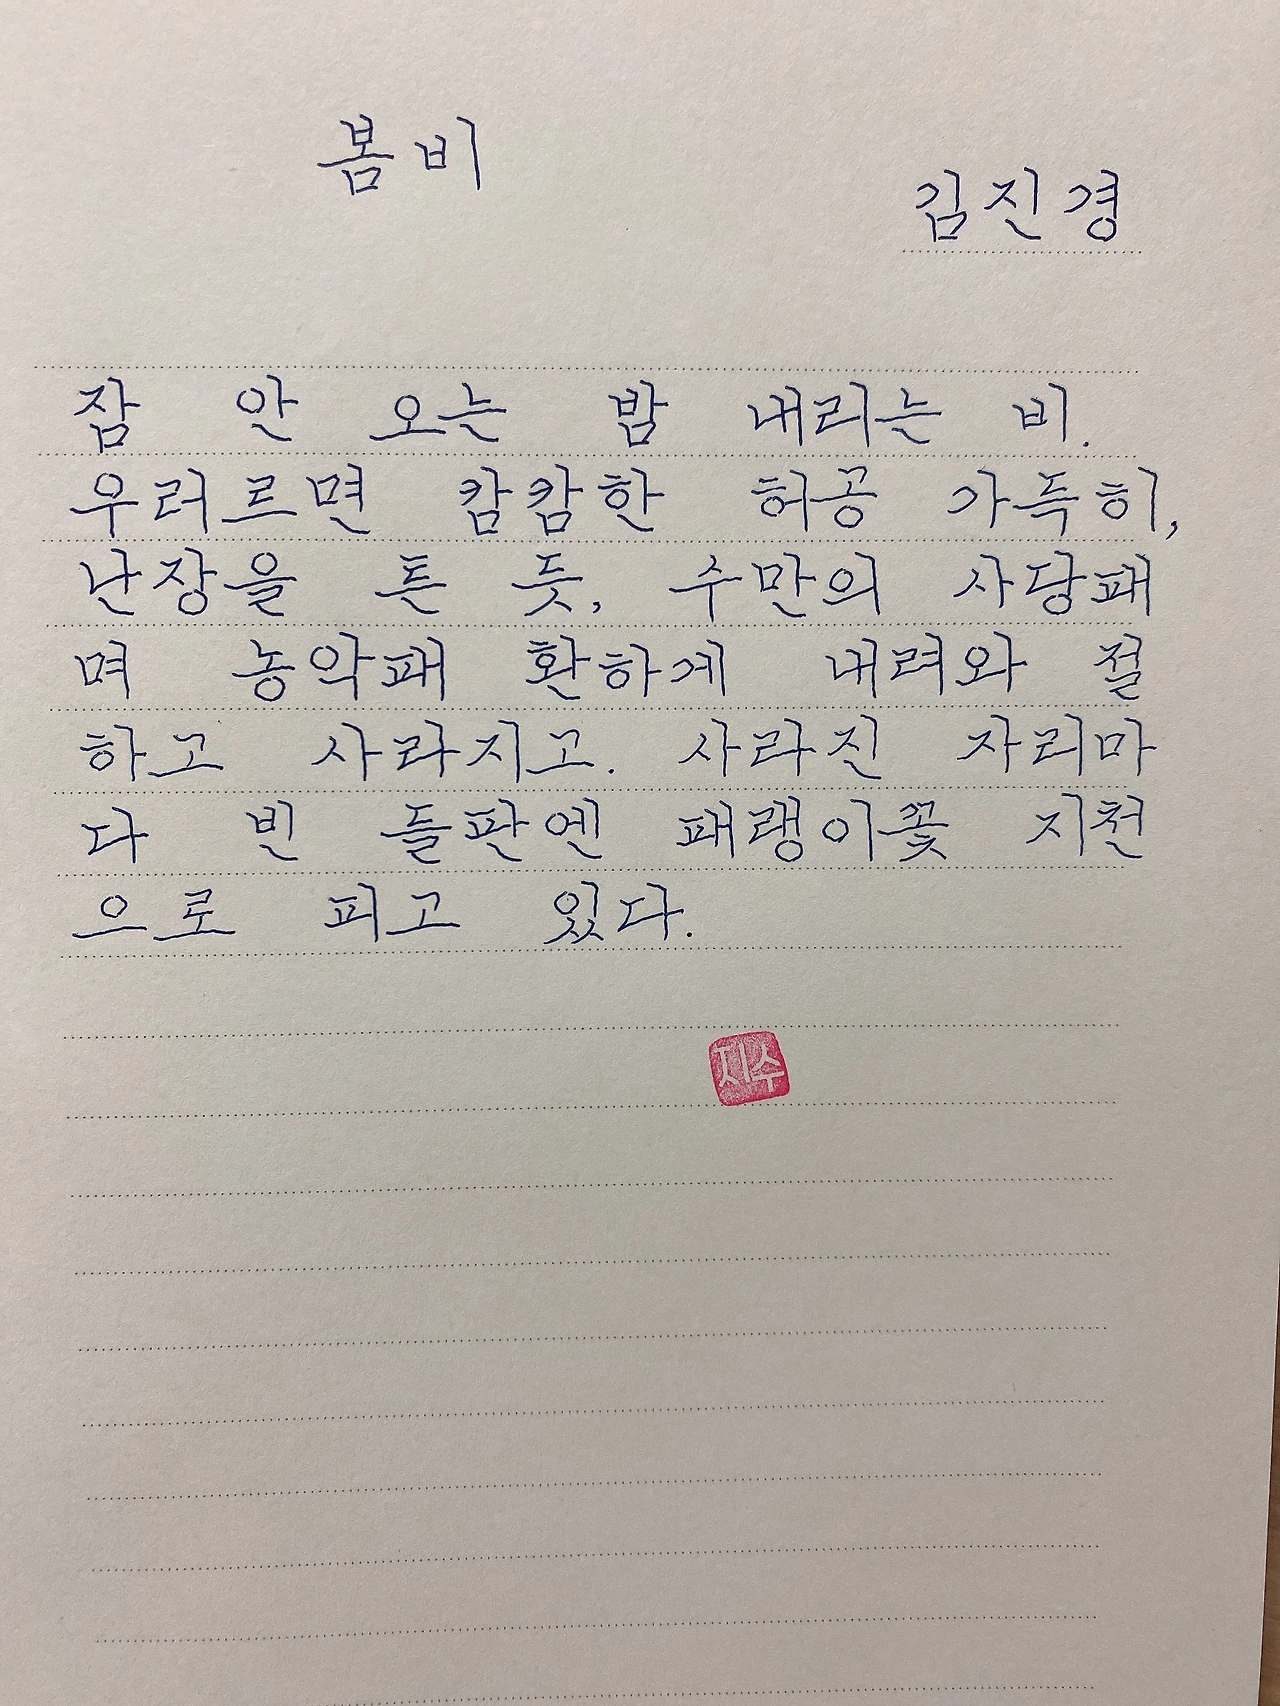 봄비
김진경
잠 안 오는 밤 내리는 비.
우러르면 캄캄한 허공 가득히,
난장을 튼 듯, 수만의 사당패
며 농악패 환하게 내려와 절
하고 사라지고. 사라진 자리마
다 빈 들판엔 패랭이꽃 지천
으로 피고 있다.
지수